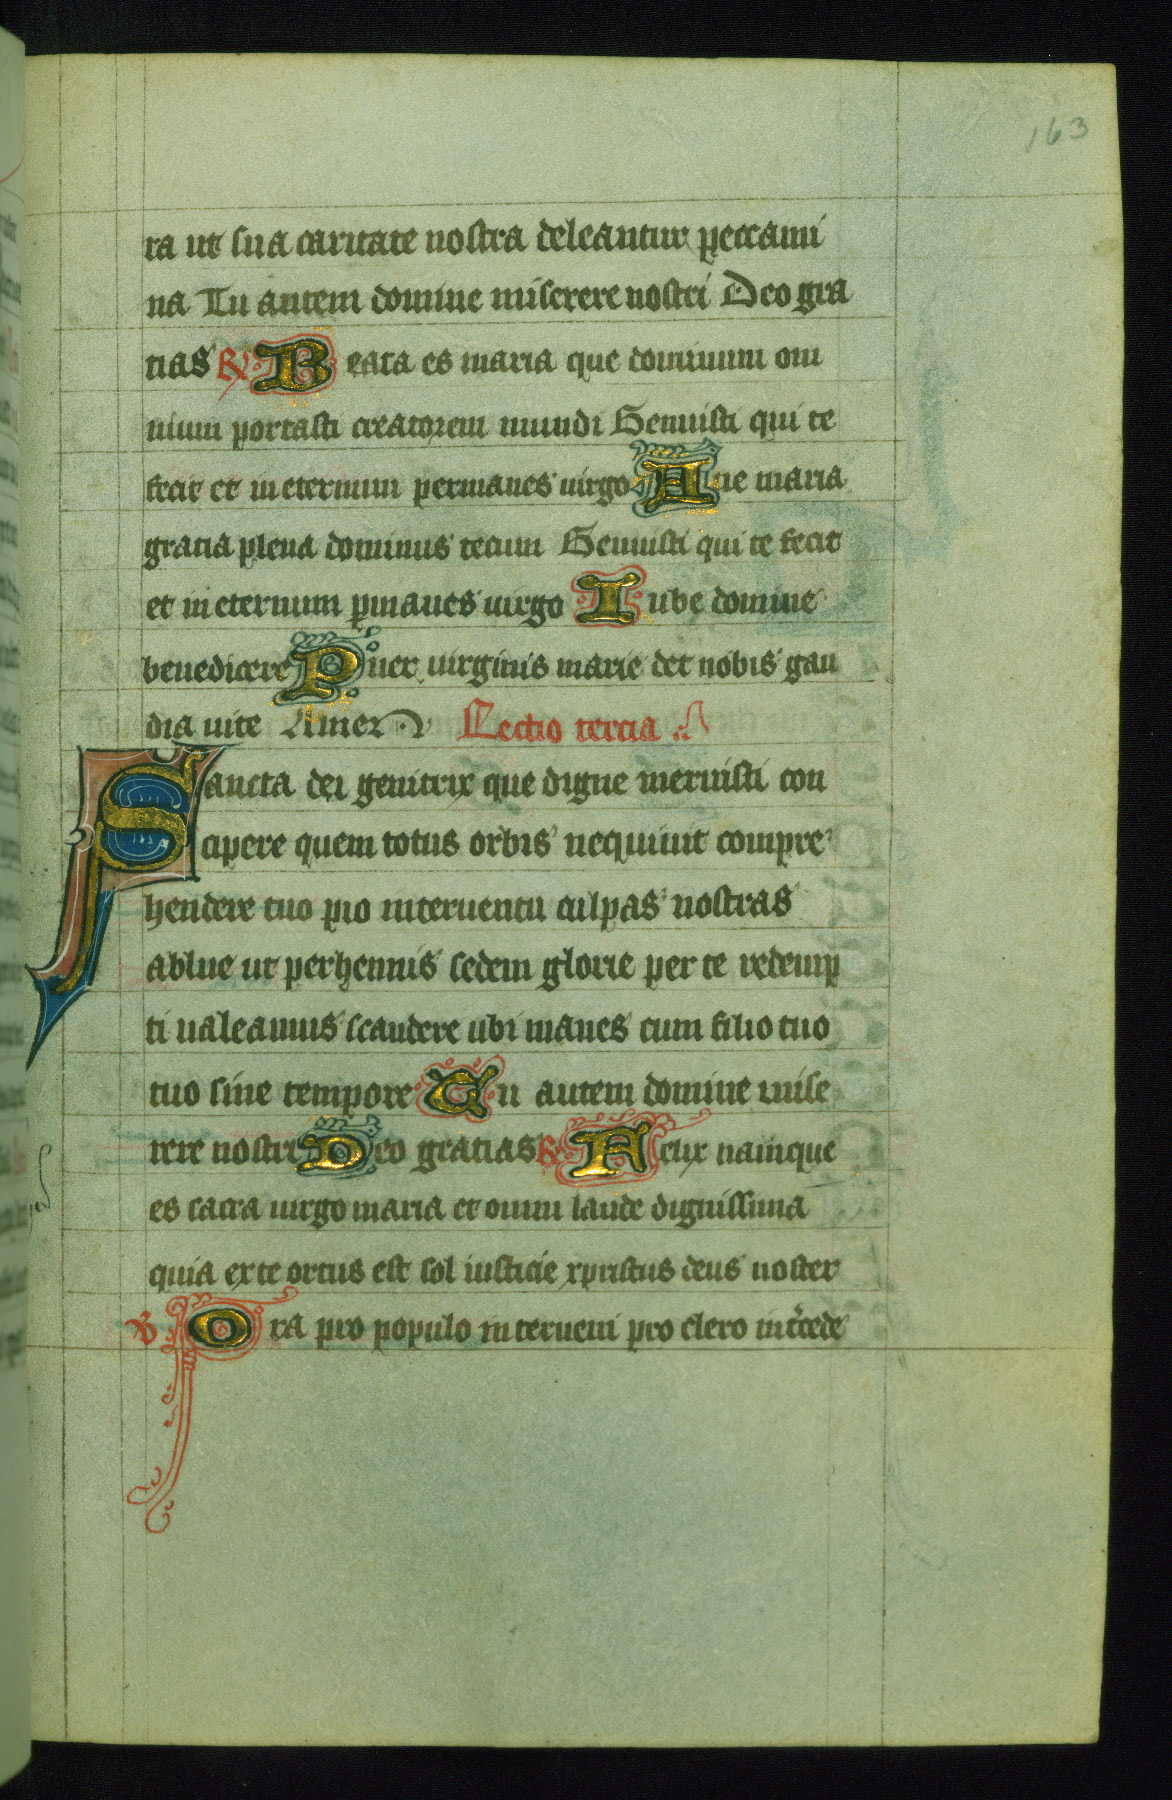 163
ra ut sua caritate nostra deleantur peccami
na Tu autem domine miserere nostri Deo gra
tias ℟ Beata es maria que dominum om
nium portasti creatorem mundi Genuisti qui te
fecit et ineternum permanes uirgo Aue maria
gratia plena dominus tecum Genuisti qui te fecit
et ineternum pmanes uirgo Iube domine
benedicere Puer uirginis marie det nobis gau
dia uite Amen Lectio tercia
Sancta dei genitrix que digne meruisti con
cipere quem totus orbis nequiuit compre
hendere tuo pio interuentu culpas nostras
ablue ut perhennis sedem glorie per te redemp
ti ualeamus scandere ubi manes cum filio tuo
tuo sine tempore Tu autem domine mise
rere nostri Deo gratias ℟ Felix namque
es sacra uirgo maria et omni laude dignissima
quia ex te ortus est sol iusticie xpristus deus noster
℣ Ora pro populo interueni pro clero int̄cede